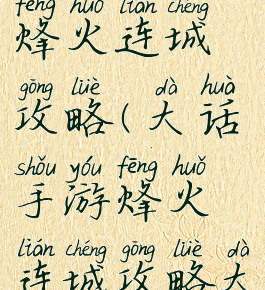 fēng huǒ lián chéng
烽火连城
gōng lüè dà huà
攻略(大话
shǒu yóu fēng huǒ
手游烽火
lián chéng gōng lüè dà
连城攻略大